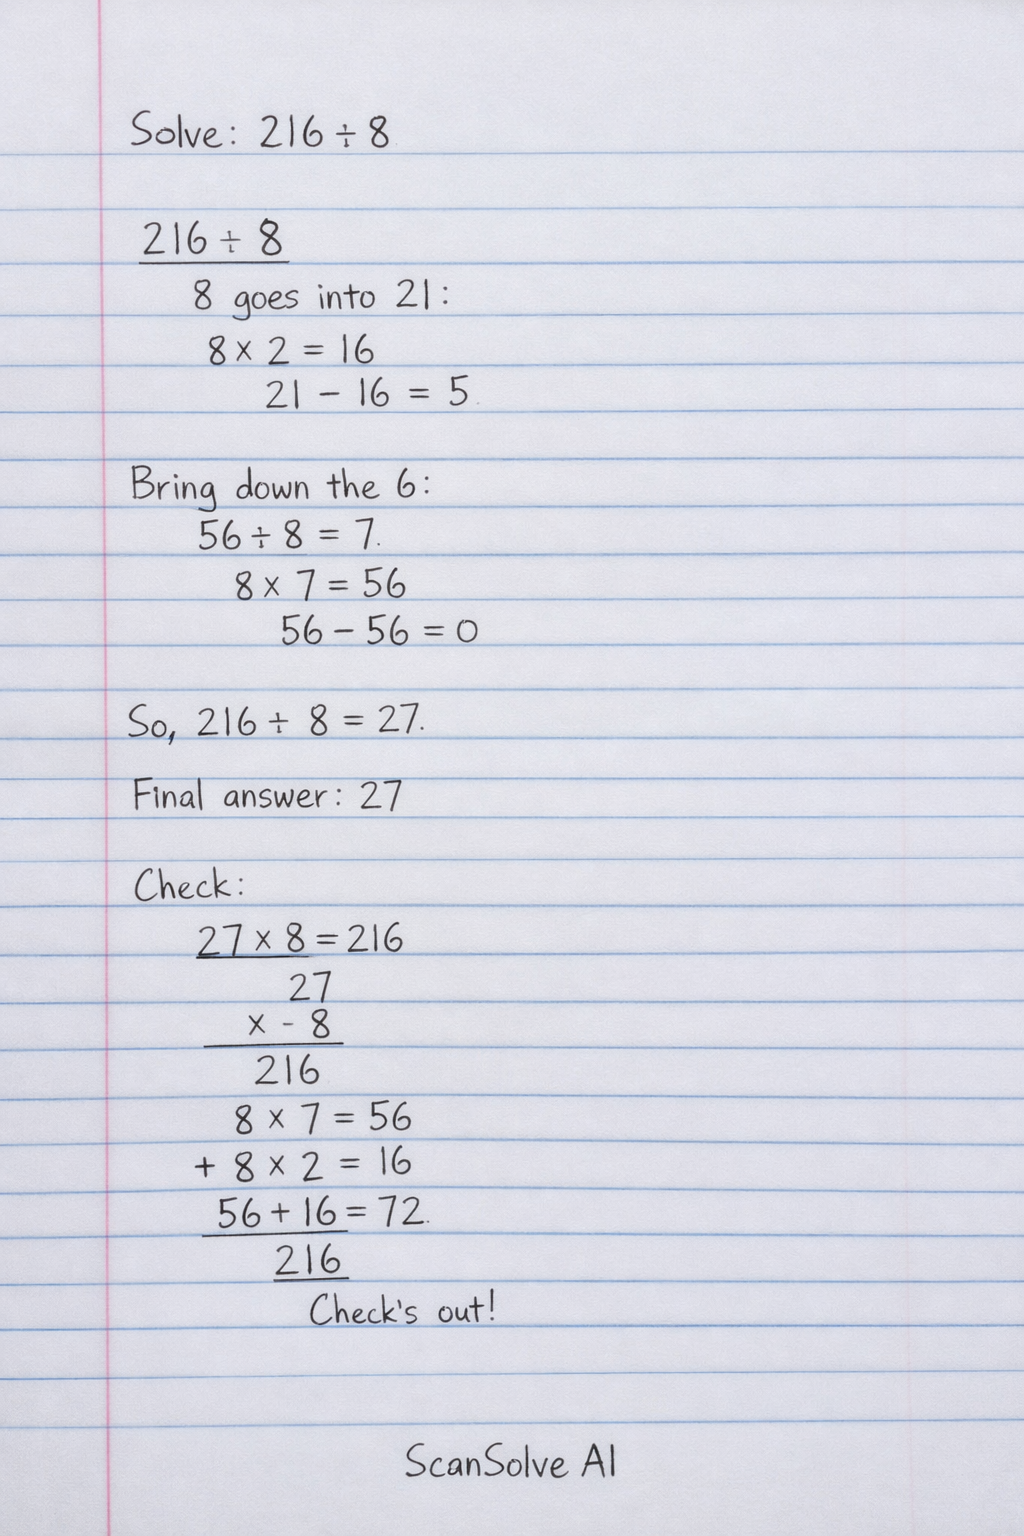 Solve: 216 ÷ 8
216 ÷ 8
8 goes into 21:
8 × 2 = 16
21 - 16 = 5
Bring down the 6:
56 ÷ 8 = 7.
8 × 7 = 56
56 - 56 = 0
So, 216 ÷ 8 = 27.
Final answer: 27
Check:
27 × 8 = 216
27
× - 8
216
8 × 7 = 56
+ 8 × 2 = 16
56 + 16 = 72.
216
Check's out!
ScanSolve AI